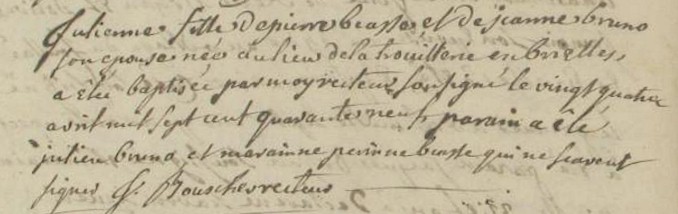 julienne fille de pierre beasse et de jeanne bruno
son epouse née au lieu de la trouillerie en brielles
a été baptisée par moy recteur soussigné le vingt quatre
avril mil sept cent quarante neuf parain a été
julien bruno et maraine perinne beasse qui ne scavent
signer J. Bouscher recteur